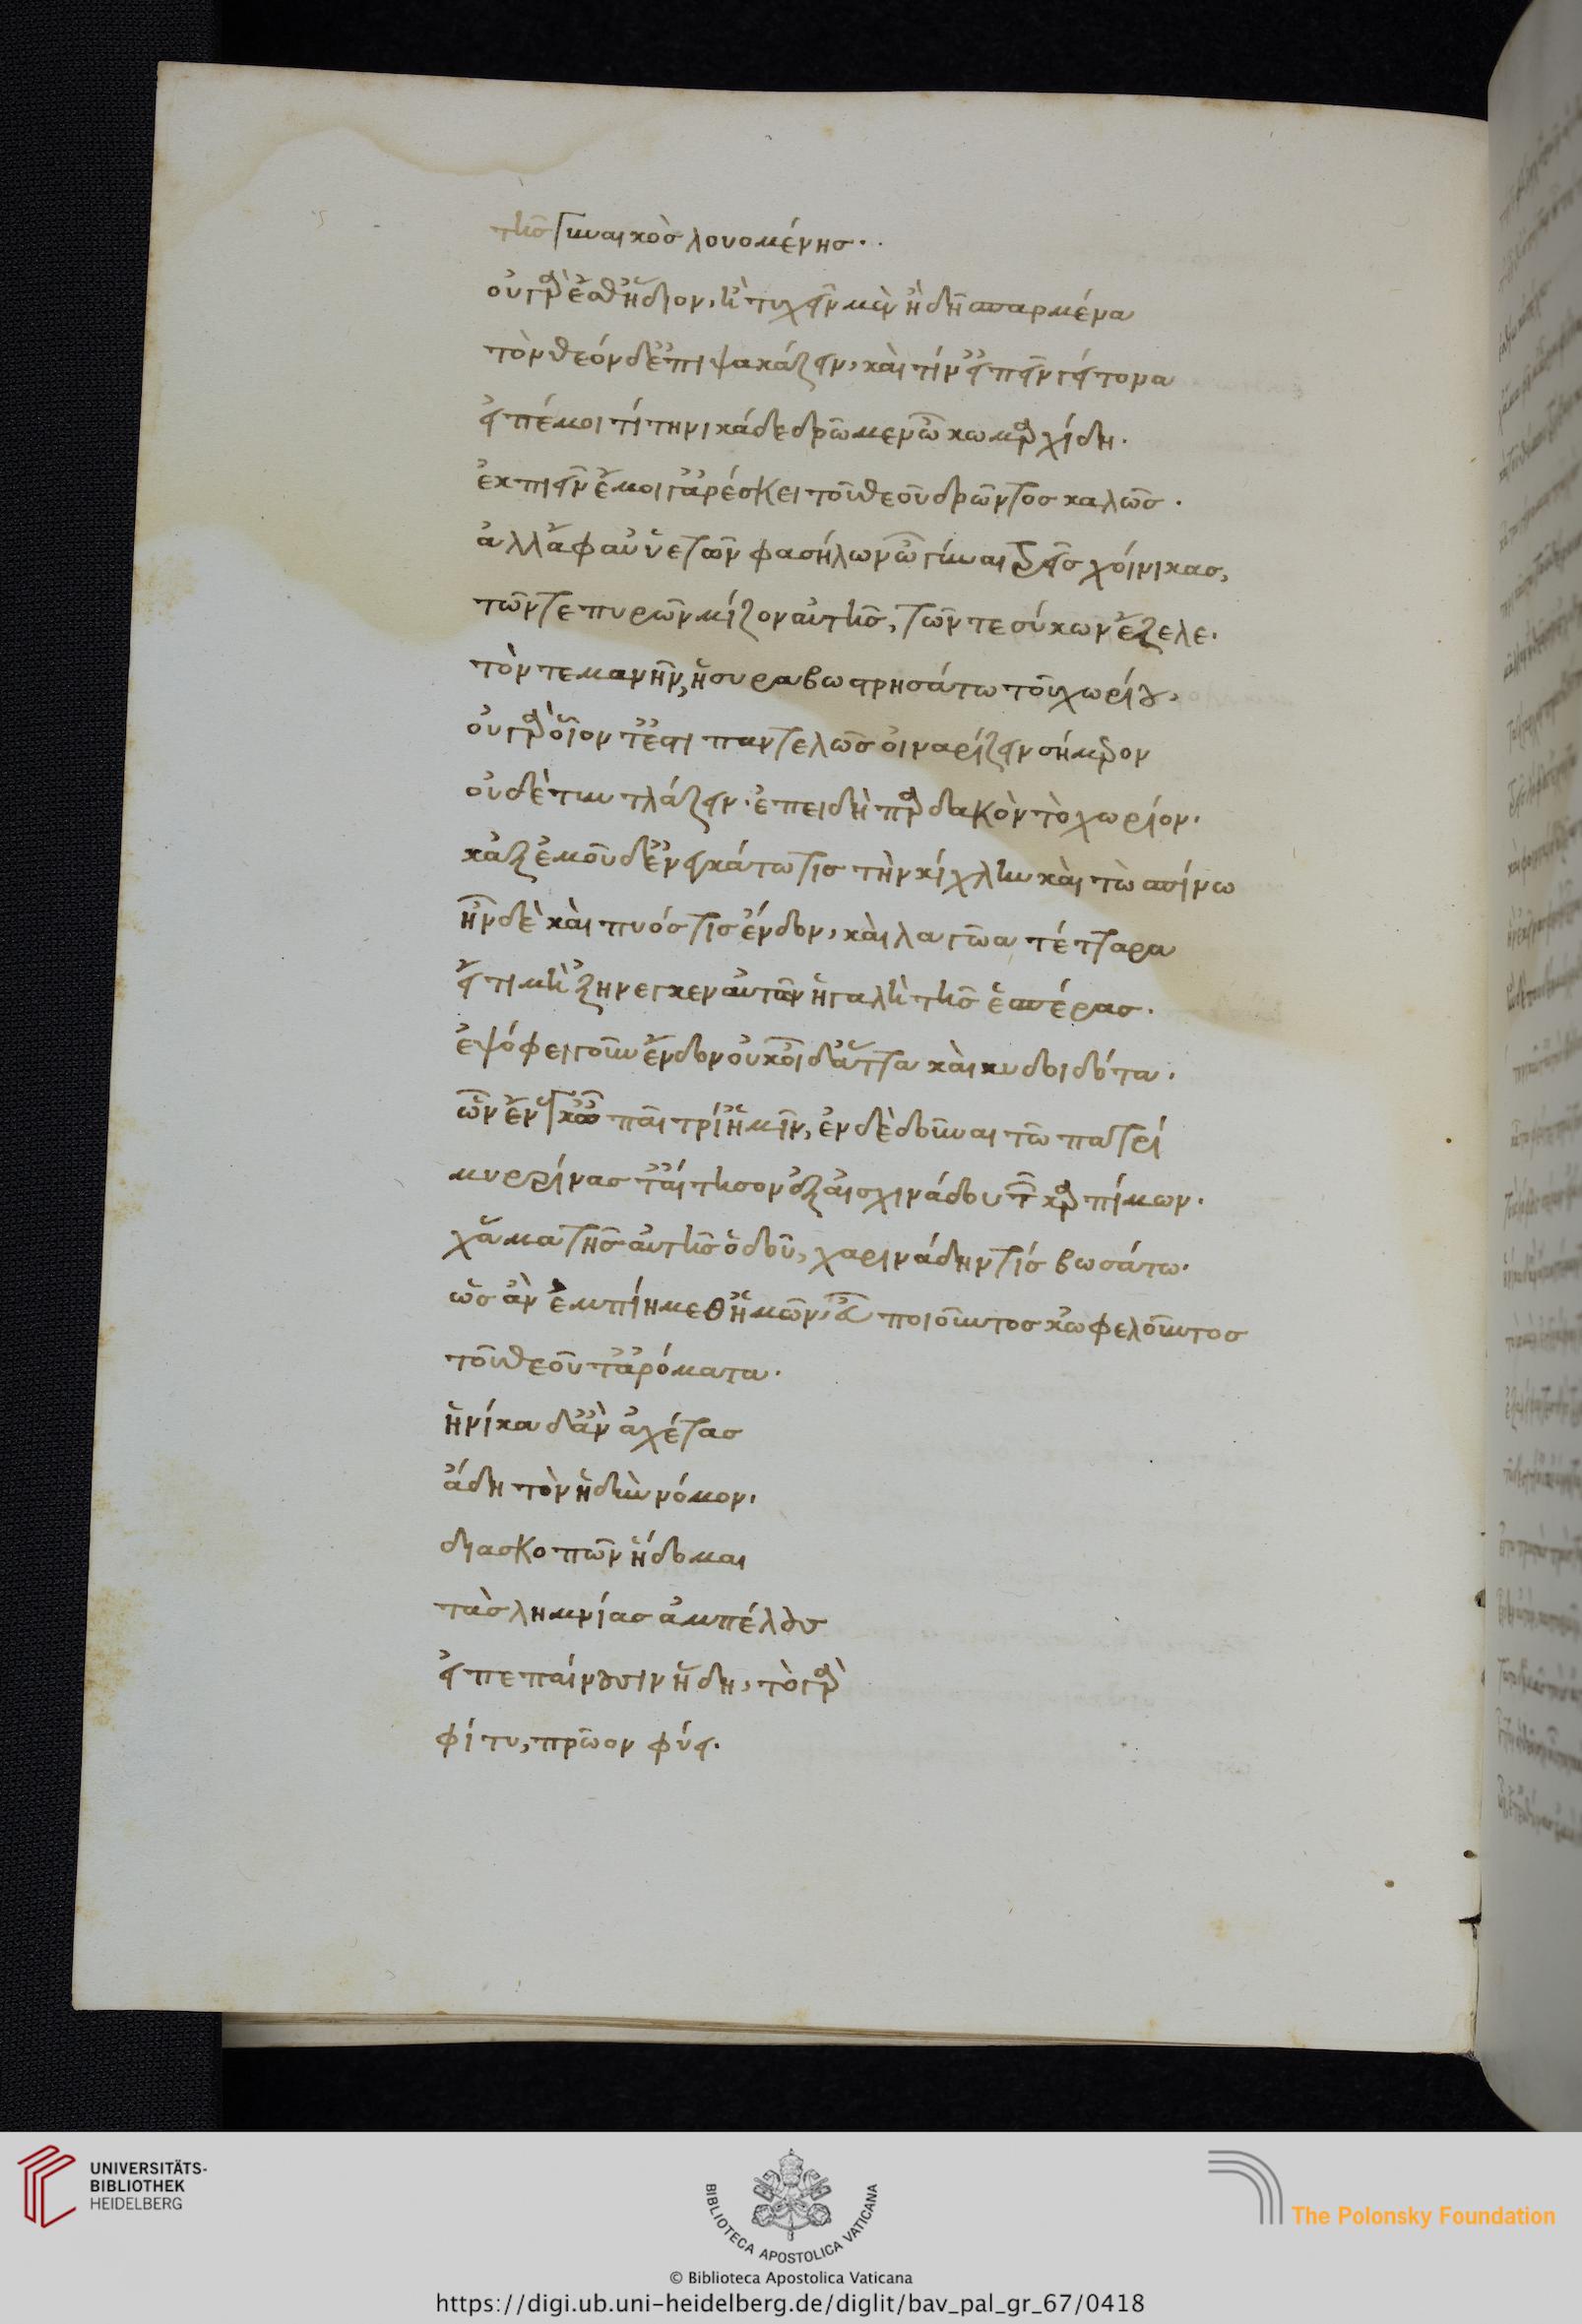 τῆς γυναικὸς λουομένης.
οὐ γὰρ ἔσθ' ἥδιον, ἢ τυχεῖν μὲν ἤδη σπαρμένα
τὸν θεὸν δ' ἐπιψακάζειν, καὶ τίν' εἰπεῖν γείτονα
εἰπέ μοι τί τηνικάδε δρῶμεν ὦ κωμαρχίδη.
ἐκπιεῖν ἔμοιγ' ἀρέσκει τοῦ θεοῦ δρῶντος καλῶς.
ἀλλ' ἄφαυε τῶν φασήλων ὦ γύναι τρεῖς χοίνικας,
τῶν τε πυρῶν μίξον αὐτῆς, τῶν τε σύκων ἔξελε.
τόν τε μανῆν, ἡ σύρα βωστρησάτω τοῦ χωρίου,
οὐ γὰρ οἷόν τ' ἐστι παντελῶς οἰναρίζειν σήμερον
οὐδὲ τυντλάζειν. ἐπειδὴ παρδακὸν τὸ χωρίον.
κἀξ ἐμοῦ δ' ἐνεικάτω τις τὴν κίχλην καὶ τὼ σπίνω
ἦν δὲ καὶ πυός τις ἔνδον, καὶ λαγῶα τέτταρα
εἴ τι μὴ 'ξήνεγκεν αὐτῶν ἡ γαλῆ τῆς ἑσπέρας.
ἐψόφει γοῦν ἔνδον οὐκ οἶδ' ἄττα καὶ κυδοιδόπα.
ὧν ἔνεγκ' ὦ παῖ τρί' ἡμῖν, ἐν δὲ δοῦναι τῶ πατρί
μυρρίνας τ' αἴτησον ἐξ αἰσχινάδου τῶν καρπίμων.
χἄμα τῆς αὐτῆς ὁδοῦ, χαρινάδην τίς βωσάτω.
ὡς ἂν ἐμπίῃ μεθ' ἡμῶν, εὖ ποιοῦντος κὠφελοῦντος
τοῦ θεοῦ τἀρόματα.
ἡνίκα δ' ἂν ἀχέτας
ἄδη τὸν ἡδὺν νόμον,
διασκοπῶν ἥδομαι
τὰς λημνίας ἀμπέλους
εἰ πεπαίνουσιν ἤδη, τὸ γὰρ
φίτυ, πρῶον φύει.
UNIVERSITÄTS-
BIBLIOTHEK
HEIDELBERG
BIBLIOTECA APOSTOLICA VATICANA
The Polonsky Foundation
© Biblioteca Apostolica Vaticana
https://digi.ub.uni-heidelberg.de/diglit/bav_pal_gr_67/0418